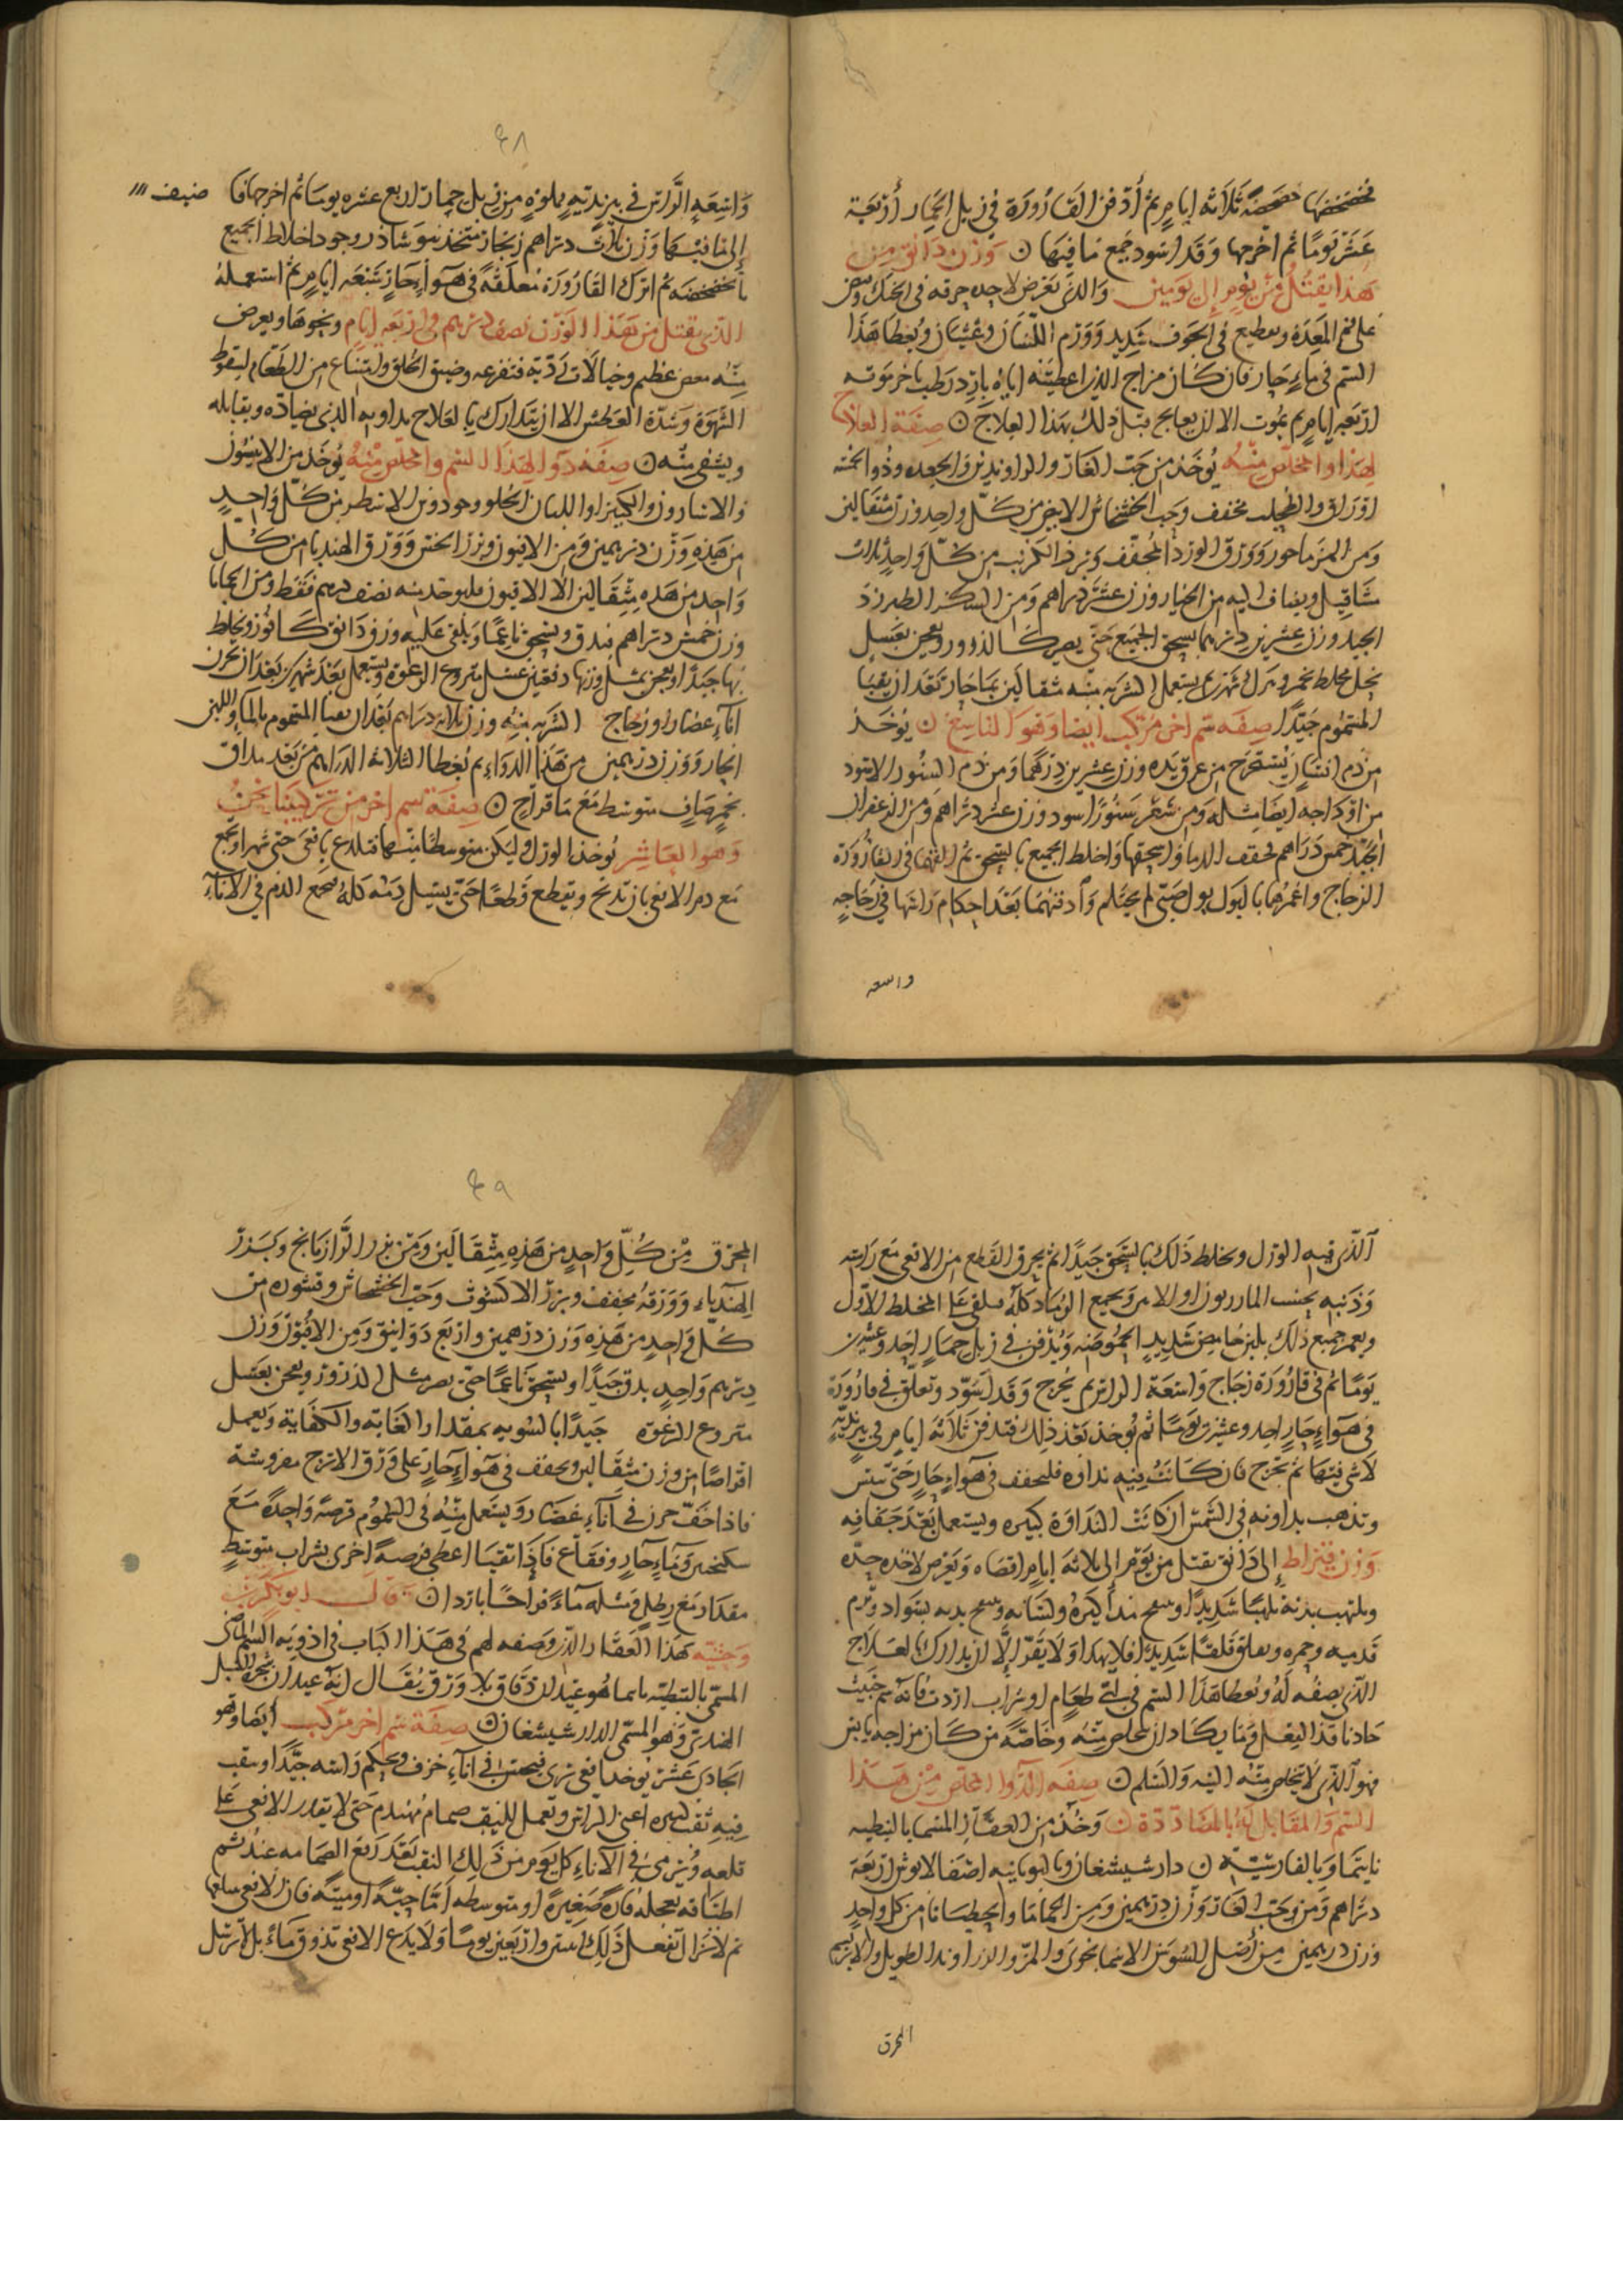 فخضخضها خضخضة ثلاثة ايام ثم أدفن القارورة في زبل الحمار أربعة
عشر يومًا ثم اخرجها وقد اسود جميع ما فيها ن وزن دانق من
هذا يقتل من يوم إلى يومين والذي يعرض لاخذه حرقه في الحنك ومغص
على فم المعدة وتقطيع في الجوف شديد وورم اللسان وغثيان ويعطا هذا
السم في ماء حار فان كان مزاج الذي اعطيته اياه بارد رطب تاخر موته
اربعه ايام ثم يموت الا ان يعالج قبل ذلك بهذا العلاج ن صفة العلاج
لهذا والمخلص منه يوخذ من حب الغار والراوند والجعده وذو الخمسه
اوراق والطحلب مجفف وحب الخشخاش الابيض من كل واحد وزن مثقالين
ومن المرماحور وورق الورد المجفف وبزر الكرنب من كل واحد ثلاث
مثاقيل ويضاف اليه من الخيار وزن عشر دراهم ومن السكر الطبرزد
الجيد وزن عشرين درهما يسحق الجميع حتى يصير كالذرور ويعجن بعسل
نحل مخلط بخمر ويترك شهر ثم يستعمل الشربه منه مثقالين بما حار بعد ان يقيا
المسموم جيدًا صفه سم اخر مركب ايضا وهو التاسع ن يوخذ
من دم انسان يستخرج من عرق يده وزن عشرين درهمًا ومن دم السنور الاسود
من اوداجه ايضا مثله ومن شعر سنورًا اسود وزن عشر دراهم ومن الزعفران
الجيد خمس دراهم تجفف الدما واسحقها واخلط الجميع بالسحق ثم القها في القارورة
الزجاج واغمرها بالبول بول صبي لم يحتلم وادفنها بعد احكام راسها في زجاجه
واسعه
٤٨
واسعه الراس في بير نديه مملوة من زبل حمار اربع عشره يوما ثم اخرجها فا ضيف
إلى ما فيها وزن ثلاث دراهم زنجار متخذ بنوشاذر وجود اخلاط الجميع
بالخضخضه ثم اترك القارورة معلقة في هواء حار سبعه ايام ثم استعمله
الذي يقتل من هذا الوزن نصف درهم في اربعه ايام ونحوها ويعرض
منه مغص عظيم وخيالات رديه مفزعه وضيق الحلق وامتناع من الطعام لسقوط
الشهوة وشدة العطش الا ان يتدارك بالعلاج مداويه الذي يضاده ويقابله
ويشفي منه ن صفه دوا لهذا السم والمخلص منه يوخذ من الانيسون
والاسارون والكثيرا واللبان الحلو من كل واحد
من هذه وزن درهمين ومن الافيون وبزر الخس وورق الهندبا من كل
واحد من هذه مثقالين الا الافيون فليوخذ منه نصف درهم فقط
وزن خمس دراهم يدق ويسحق ناعمًا ويلقى عليه وزن دانق كافور ويخلط
بها جيدًا ويعجن بمثل وزنها دفعتين عسل منزوع الرغوة ويستعمل بعد شهرين بعد ان يخزن
اناء غضار او زجاج الشربه منه وزن ثلاثه دراهم بعد ان يقيا المسموم بالماء واللبن
الحار ووزن درهمين من هذا الدواء ثم يعطا الثلاثه الدراهم من بعد مداف
بخمر صاف متوسط مع ما قراح ن صفة سم اخر من تركيبنا نحن
وهو العاشر يوخذ الورل وليكن متوسطا تلدغ بافعى حتى تهرا ويجمع
مع دم الافعى بان تذبح وتقطع قطعا حتى يسيل دمه كله يجمع الدم في الاناء
الذي فيه الورل ويخلط ذلك بالسحق جيدًا ثم يحرق القطع من الافعى مع راسه
وذنبه بخشب المازريون او الاس ويجمع الرماد كله فيلقى على المخلط الاول
ويغمر جميع ذلك بلبن حامض شديد الحموضه ويدفن في زبل حمار احد وعشرين
يومًا ثم في قارورة زجاج واسعة الراس ثم يخرج وقد اسود وتعلق في قارورة
في هواء حار احد وعشرين يومًا ثم يوخذ بعد ذلك فتدفن ثلاثه ايام في بير نديه
لا شي فيها ثم تخرج فان كانت فيه نداوه فليجفف في هواء حار حتى ييبس
وتذهب نداوته في الشمس ان كانت النداوة كبيره ويستعمل بعد جفافه
وزن قيراط إلى دانق يقتل من يوم إلى ثلاثه ايام اقصاه ويعرض لاخذه حده
ويلتهب بدنه تلهبًا شديدًا وينتفخ لسانه وينتفخ بدنه بسواد وترم
قدميه ويقلق قلقًا شديدًا فلا يهدا ولا يقر إلا ان يدارك بالعلاج
الذي نصفه له ويعطا هذا السم في اي طعام او شراب اردت فانه سم خبيث
حاد نافذ الفعل وما يكاد ان يتخلص منه وخاصة من كان مزاجه يابس
فهو الذي لا يتخلص منه البته والسلم ن صفه الدوا المخلص من هذا
السم والمقابل له بالمضاددة ن وخذ من العقار المسما بالنبطيه
نايتما وبالفارسية ن دارشيشغان وباليونانيه اربعة
دراهم ومن حب الغار وزن درهمين ومن الحماما والجنطيانا من كل واحد
وزن درهمين من أصل السوسن الاسمانجوني والمر والزراوند الطويل والابريسم
المحرق
٤٩
المحرق من كل واحد من هذه مثقالين ومن بزر الرازيانج وبزر
الهندباء وورقه مجفف وبزر الاكشوث وحب الخشخاش وقشوره من
كل واحد من هذه وزن درهمين واربع دوانيق ومن الافيون وزن
درهم واحد يدق جيدًا ويسحق ناعمًا حتى يصير مثل الذرور ويعجن بعسل
منزوع الرغوه جيدًا بالسويه بمقدار الغايه والكفاية ويعمل
اقراصًا من وزن مثقالين ويجفف في هواء حار على ورق الاترج مفروشة
فاذا جف خزن في اناء غضار ويستعمل منه في السموم قرصة واحدة مع
سكنجبين وماء حار وفقاع فاذا تقيا اعطي قرصة اخرى بشراب متوسط
مقدار مع رطل ومثله ماء قراحًا بارد ن قال ابو بكر بن
وحشيه هذا العقار الذي وصفه لهم في هذا الباب في ادويه السم
المسمى بالنبطيه نايتما هو عيدان دقاق بلا ورق يقال انه عيدان شجر السنبل
الهندي وهو المسمى الدارشيشغان ن صفة سم اخر مركب ايضا وهو
الحادي عشر يوخذ افعى بري فيحبس في اناء خزف ويحكم راسه جيدًا ويثقب
فيه ثقب اعني الراس ويعمل للثقب صمام مهندم حتى لا يقدر الافعى على
قلعه ويرمى في الاناء كل يوم من ذلك الثقب بعد رفع الصمامه عنه ثم
اطباقه بعجله فارة صغيرة او متوسطه اما حيةً او ميتة فان الافعى يبلعها
ثم لا تزال تفعل ذلك اثنين واربعين يومًا ولا يدع الافعى تذوق ماء بل لا ترسل